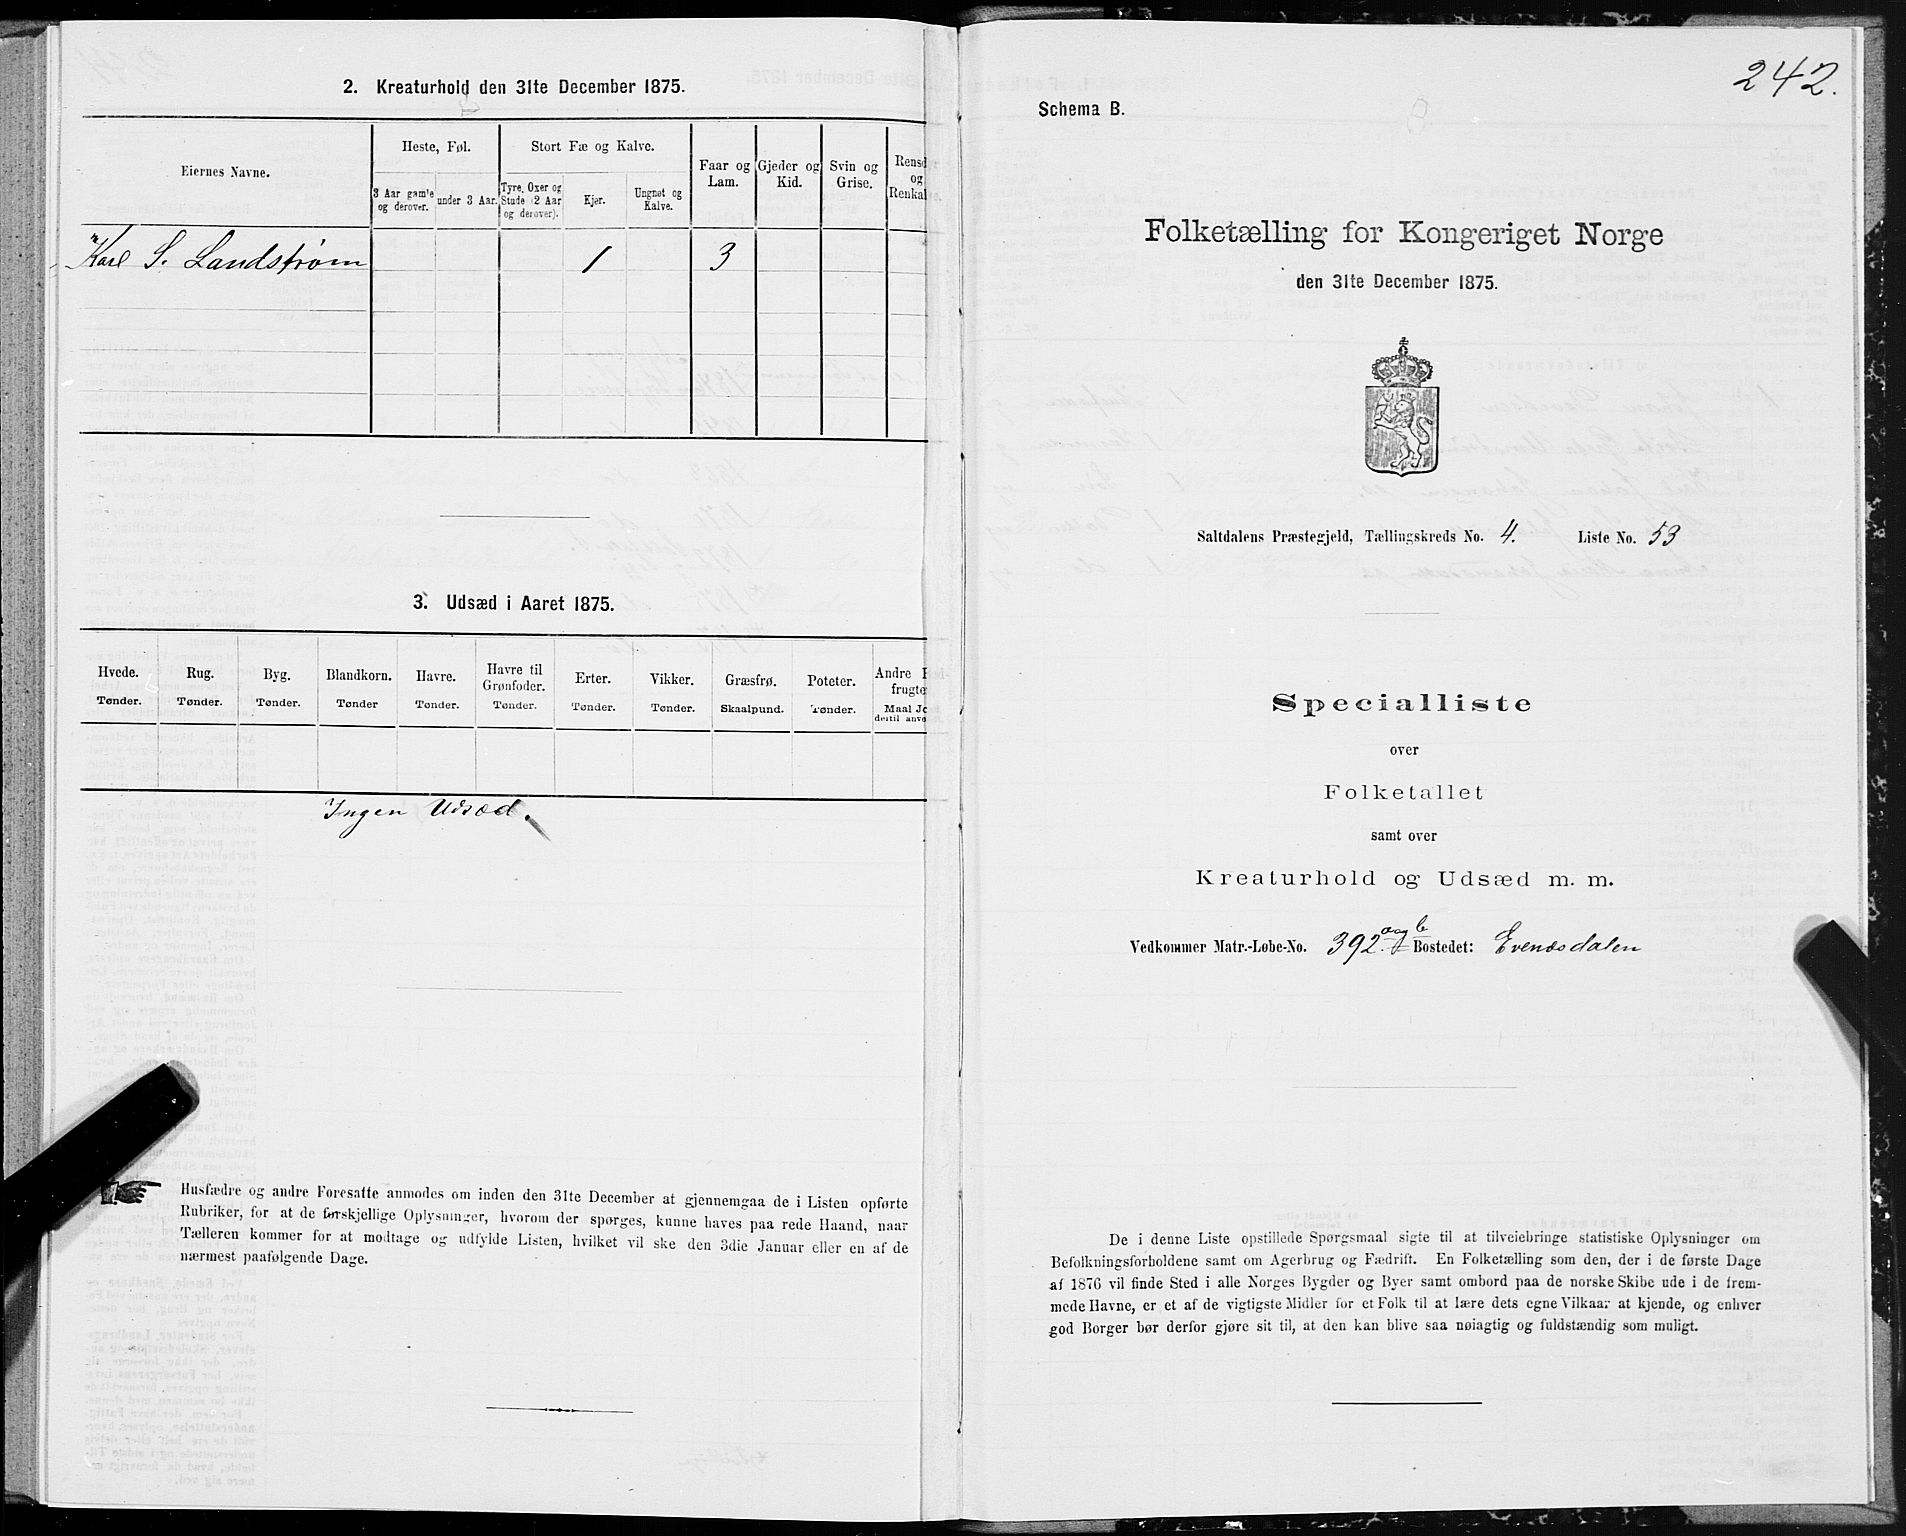 2. Kreaturhold den 31te December 1875.
Eiernes Navne.
Heste, Føl.
Stort Fæ og Kalve.
Faar og Lam.
Gjeder og Kid.
Svin og Grise.
og
3 Aar gamle og derover.
under 3 Aar.
Tyre, Oxer og Stude (2 Aar og derover).
Kjør.
Ungnøt og Kalve.
Karl S. Landstrøm 1 3
3. Udsæd i Aaret 1875.
Hvede. Rug. Byg. Blandkorn. Havre. Havre til Grønfoder. Erter. Vikker. Græsfrø. Poteter. Andre
Tønder. Tønder. Tønder. Tønder Tønder. Tønder. Tønder. Tønder. Skaalpund. Tønder. Maal
Ingen Udsæd.
Husfædre og andre Foresatte anmodes om inden den 31te December at gjennemgaa de i Listen opførte
Rubriker, for at de forskjellige Oplysninger, hvorom der spørges, kunne haves paa rede Haand, naar
Tælleren kommer for at modtage og udfylde Listen, hvilket vil ske den 3die Januar eller en af de
nærmest paafølgende Dage.
242.
Schema B.
Folketælling for Kongeriget Norge
den 31te December 1875.
Saltdalens Præstegjeld, Tællingskreds No. 4. Liste No. 53
Specialliste
over
Folketallet
samt over
Kreaturhold og Udsæd m. m.
Vedkommer Matr.-Løbe-No. 392. a og b Bostedet: Evenæsdalen
De i denne Liste opstillede Spørgsmaal sigte til at tilveiebringe statistiske Oplysninger om
Befolkningsforholdene samt om Agerbrug og Fædrift. En Folketælling som den, der i de første Dage
af 1876 vil finde Sted i alle Norges Bygder og Byer samt ombord paa de norske Skibe ude i de frem-
mede Havne, er et af de vigtigste Midler for et Folk til at lære dets egne Vilkaar at kjende, og enhver
god Borger bør derfor gjøre sit til, at den kan blive saa nøiagtig og fuldstændig som muligt.